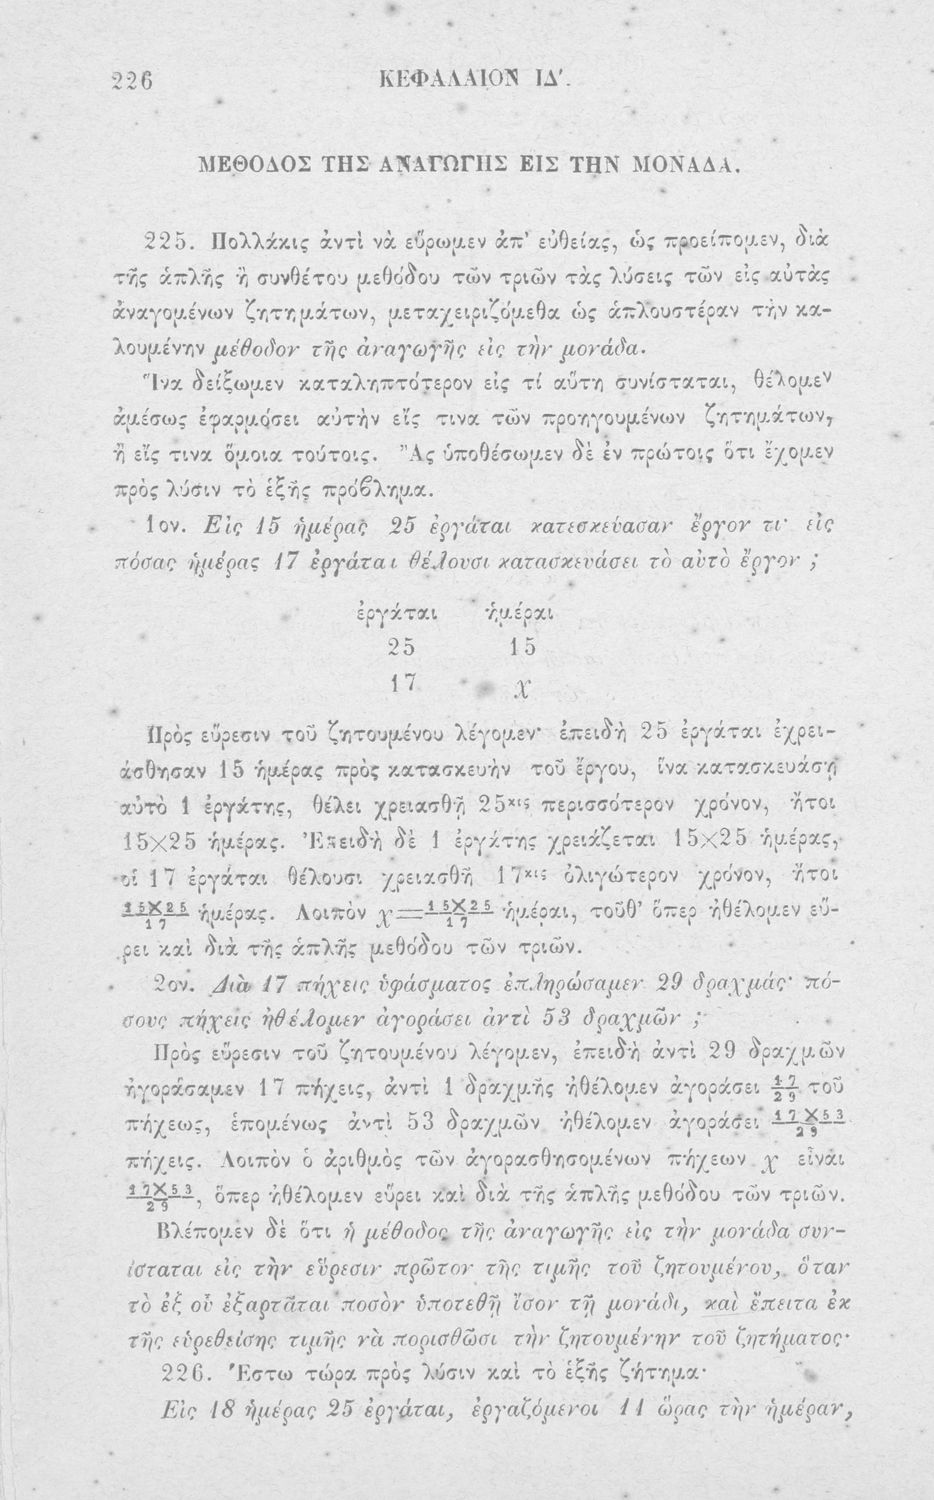 226 ΚΕΦΑΛΑΙΟΝ ΙΔ'.
ΜΕΘΟΔΟΣ ΤΗΣ ΑΝΑΓΩΓΗΣ ΕΙΣ ΤΗΝ ΜΟΝΑΔΑ.
225. Πολλάκις ἀντὶ νὰ εὕρωμεν ἀπ' εὐθείας, ὡς προείπομεν, διὰ
τῆς ἁπλῆς ἢ συνθέτου μεθόδου τῶν τριῶν τὰς λύσεις τῶν εἰς αὐτὰς
ἀναγομένων ζητημάτων, μεταχειριζόμεθα ὡς ἁπλουστέραν τὴν κα-
λουμένην μέθοδον τῆς ἀναγωγῆς εἰς τὴν μονάδα.
Ἵνα δείξωμεν καταληπτότερον εἰς τί αὕτη συνίσταται, θέλομεν
ἀμέσως ἐφαρμόσει αὐτὴν εἴς τινα τῶν προηγουμένων ζητημάτων,
ἢ εἴς τινα ὅμοια τούτοις. Ἂς ὑποθέσωμεν δὲ ἐν πρώτοις ὅτι ἔχομεν
πρὸς λύσιν τὸ ἑξῆς πρόβλημα.
1ον. Εἰς 15 ἡμέρας 25 ἐργάται κατεσκεύασαν ἔργον τι· εἰς
πόσας ἡμέρας 17 ἐργάται θέλουσι κατασκευάσει τὸ αὐτὸ ἔργον ;
ἐργάται ἡμέραι
25 15
17 χ
Πρὸς εὕρεσιν τοῦ ζητουμένου λέγομεν· ἐπειδὴ 25 ἐργάται ἐχρει-
άσθησαν 15 ἡμέρας πρὸς κατασκευὴν τοῦ ἔργου, ἵνα κατασκευάσῃ
αὐτὸ 1 ἐργάτης, θέλει χρειασθῆ 25κις περισσότερον χρόνον, ἤτοι
15×25 ἡμέρας. Ἐπειδὴ δὲ 1 ἐργάτης χρειάζεται 15×25 ἡμέρας,
οἱ 17 ἐργάται θέλουσι χρειασθῆ 17κις ὀλιγώτερον χρόνον, ἤτοι
15×25/17 ἡμέρας. Λοιπὸν χ=15×25/17 ἡμέραι, τοῦθ' ὅπερ ἠθέλομεν εὕ-
ρει καὶ διὰ τῆς ἁπλῆς μεθόδου τῶν τριῶν.
2ον. Διὰ 17 πήχεις ὑφάσματος ἐπληρώσαμεν 29 δραχμάς· πό-
σους πήχεις ἠθέλομεν ἀγοράσει ἀντὶ 53 δραχμῶν ;
Πρὸς εὕρεσιν τοῦ ζητουμένου λέγομεν, ἐπειδὴ ἀντὶ 29 δραχμῶν
ἠγοράσαμεν 17 πήχεις, ἀντὶ 1 δραχμῆς ἠθέλομεν ἀγοράσει 17/29 τοῦ
πήχεως, ἑπομένως ἀντὶ 53 δραχμῶν ἠθέλομεν ἀγοράσει 17×53/29
πήχεις. Λοιπὸν ὁ ἀριθμὸς τῶν ἀγορασθησομένων πήχεων χ εἶναι
17×53/29, ὅπερ ἠθέλομεν εὕρει καὶ διὰ τῆς ἁπλῆς μεθόδου τῶν τριῶν.
Βλέπομεν δὲ ὅτι ἡ μέθοδος τῆς ἀναγωγῆς εἰς τὴν μονάδα συν-
ίσταται εἰς τὴν εὕρεσιν πρῶτον τῆς τιμῆς τοῦ ζητουμένου, ὅταν
τὸ ἐξ οὗ ἐξαρτᾶται ποσὸν ὑποτεθῇ ἴσον τῇ μονάδι, καὶ ἔπειτα ἐκ
τῆς εὑρεθείσης τιμῆς νὰ πορισθῶσι τὴν ζητουμένην τοῦ ζητήματος·
226. Ἔστω τώρα πρὸς λύσιν καὶ τὸ ἑξῆς ζήτημα·
Εἰς 18 ἡμέρας 25 ἐργάται, ἐργαζόμενοι 11 ὥρας τὴν ἡμέραν,